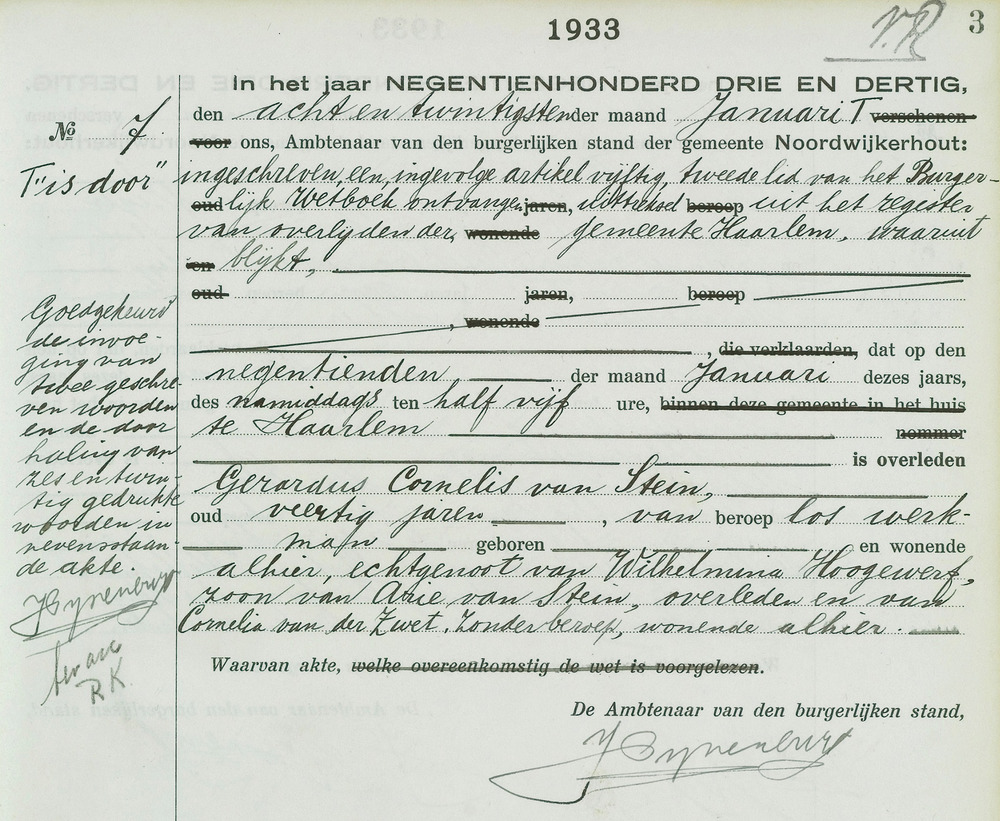 1933
V.R
3
In het jaar NEGENTIENHONDERD DRIE EN DERTIG,
den acht en twintigsten der maand Januari T verschenen
№ 7
voor ons, Ambtenaar van den burgerlijken stand der gemeente Noordwijkerhout:
T "is door"
ingeschreven, een, ingevolge artikel vijftig, tweede lid van het Burger-
oud lijk Wetboek ontvangen jaren, uittreksel beroep uit het register
van overlijden der wonende gemeente Haarlem, waaruit
en blijkt,
oud jaren, beroep
, wonende
, die verklaarden, dat op den
negentienden der maand Januari dezes jaars,
des namiddags ten half vijf ure, binnen deze gemeente in het huis
te Haarlem nommer
is overleden
Gerardus Cornelis van Stein,
oud veertig jaren, van beroep los werk-
man geboren en wonende
alhier, echtgenoot van Wilhelmina Hoogewerf,
zoon van Arie van Stein, overleden en van
Cornelia van der Zwet, zonder beroep, wonende alhier.
Waarvan akte, welke overeenkomstig de wet is voorgelezen.
De Ambtenaar van den burgerlijken stand,
Goedgekeurd
de invoe
ging van
twee geschre-
ven woorden
en de door
haling van
zes en twin-
tig gedrukte
woorden in
nevensstaan-
de akte.
R.K.